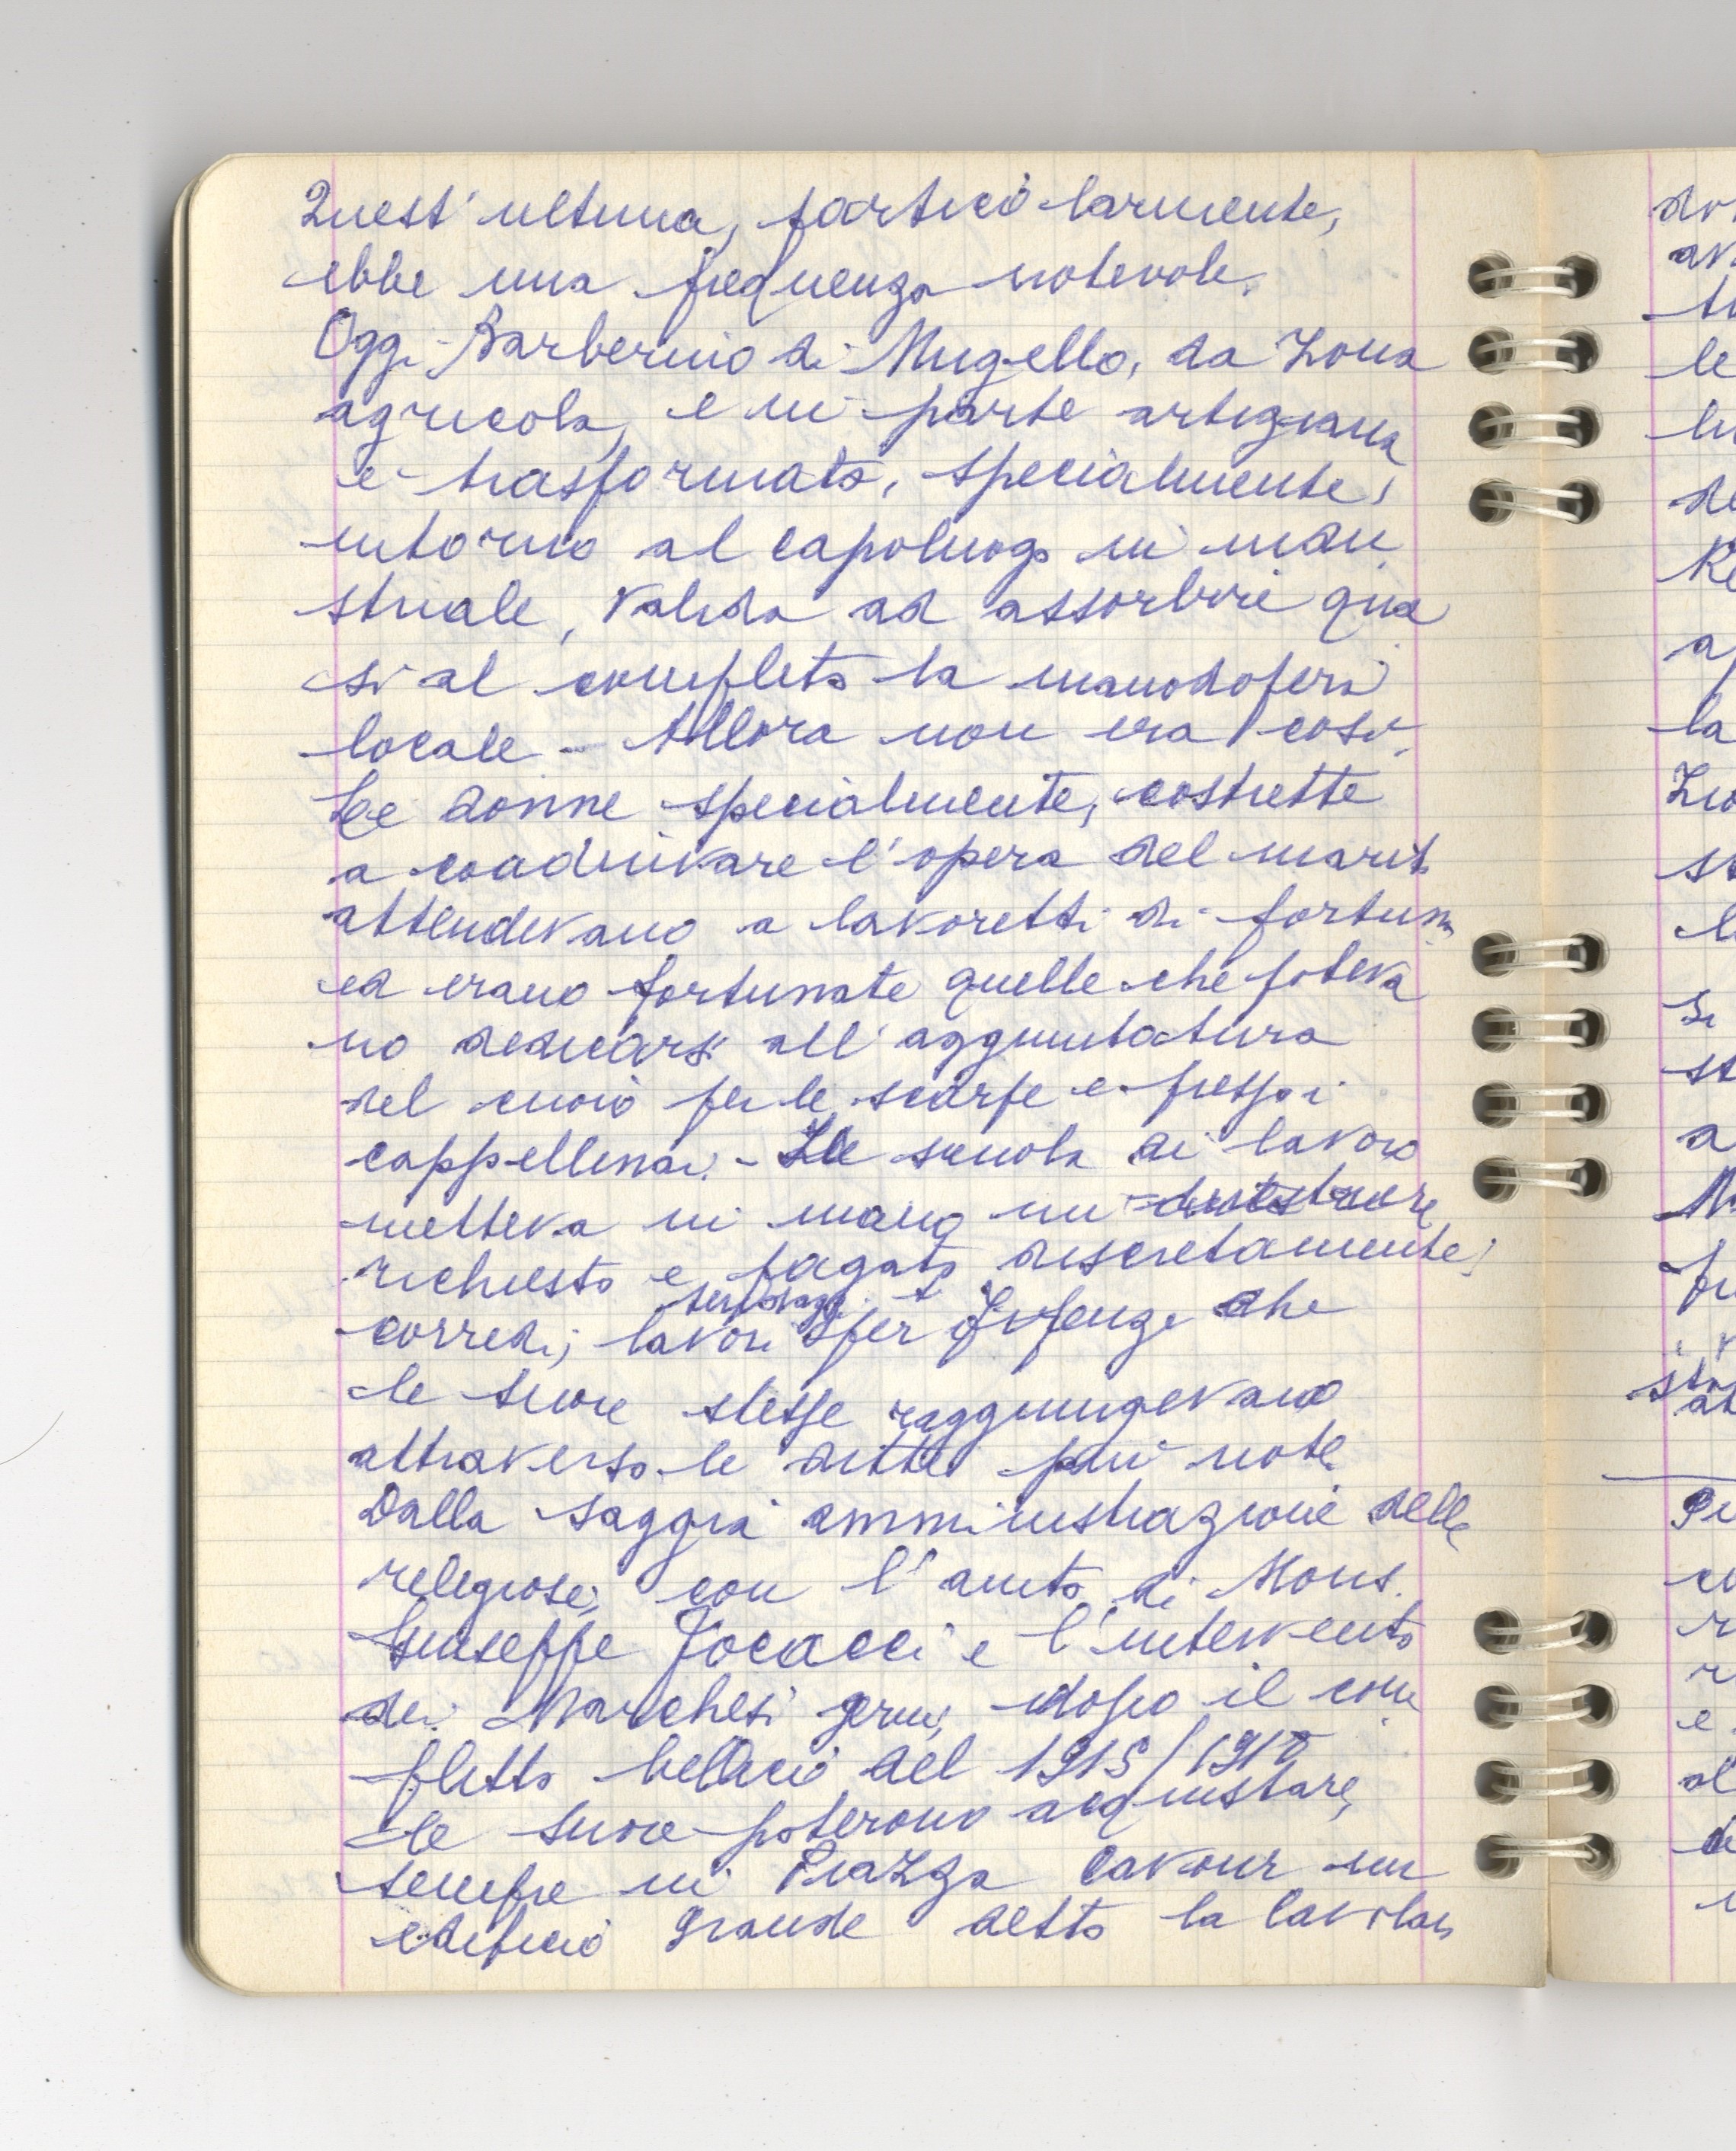 Quest'ultima, particolarmente,
ebbe una frequenza notevole.
Oggi Barberino di Mugello, da Zona
agricola, e in parte artigiana
è trasformato, specialmente,
intorno al capoluogo in indu
striale, valida ad assorbire qua
si al completo la manodopera
locale - Allora non era così.
Le donne specialmente, costrette
a coadiuvare l'opera del marito
attendevano a lavoretti di fortuna
ed erano fortunate quelle che poteva
no dedicarsi all'aggiuntatura
del cuoio per le scarpe e presso i
cappellinai. - La scuola di lavoro
metteva in mano un
richiesto e pagato discretamente;
corredi; lavori per Firenze che
le suore stesse raggiungevano
attraverso le ditte più note
Dalla saggia amministrazione delle
religiose, con l'aiuto di Mons.
Giuseppe Focacci e l'intervento
dei Marchesi Gerini, dopo il con
flitto bellico del 1915/1918
le suore poterono acquistare,
sempre in Piazza Cavour un
edificio grande detto la
dr
av
le
de
Re
la
st
a